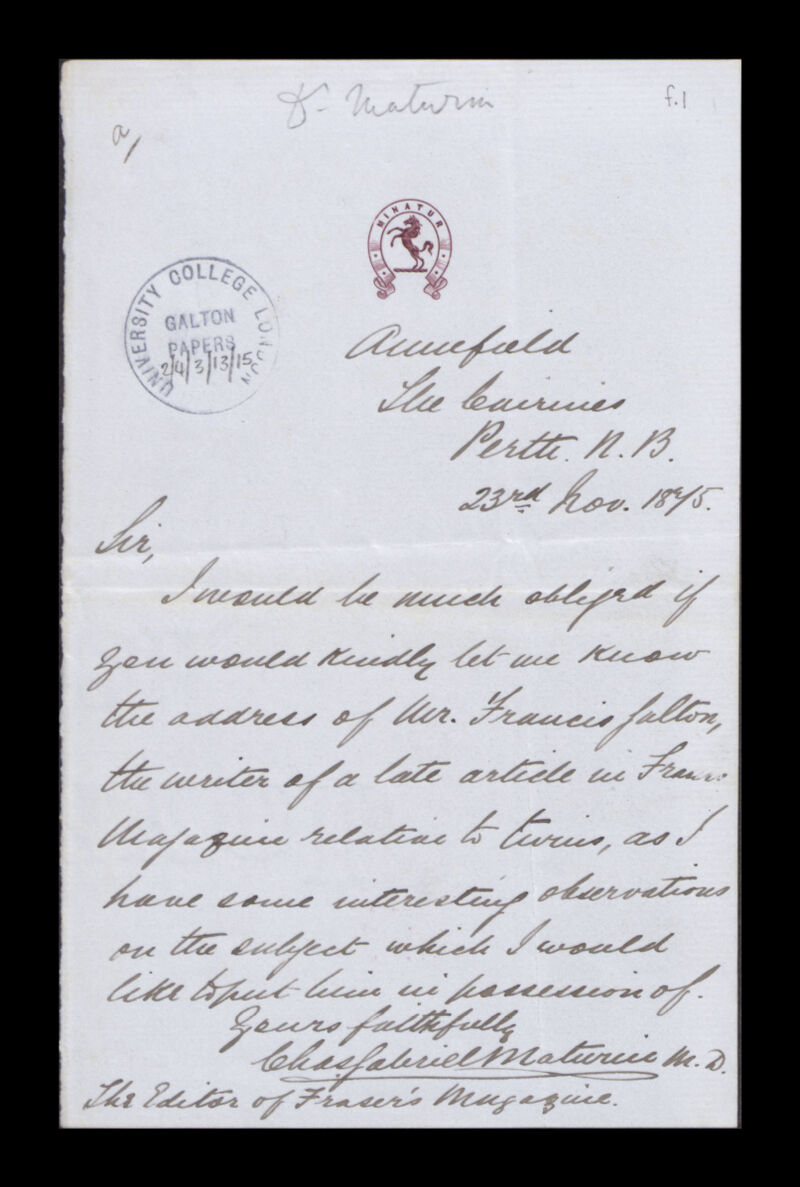 Dr Maturin
f.1
a/
MINATUR
UNIVERSITY COLLEGE LONDON
GALTON
PAPERS
2/4/3/13/15
Annefield
The Cairnies
Perth. N. B.
23rd Nov. 1875.
Sir,
I would be much obliged if
you would kindly let me know
the address of Mr. Francis Galton,
the writer of a late article in
Magazine relative to twins, as I
have some interesting observations
on the subject which I would
like to put him in possession of.
Yours faithfully
Chas. Gabriel Maturin M. D.
The Editor of Fraser's Magazine.